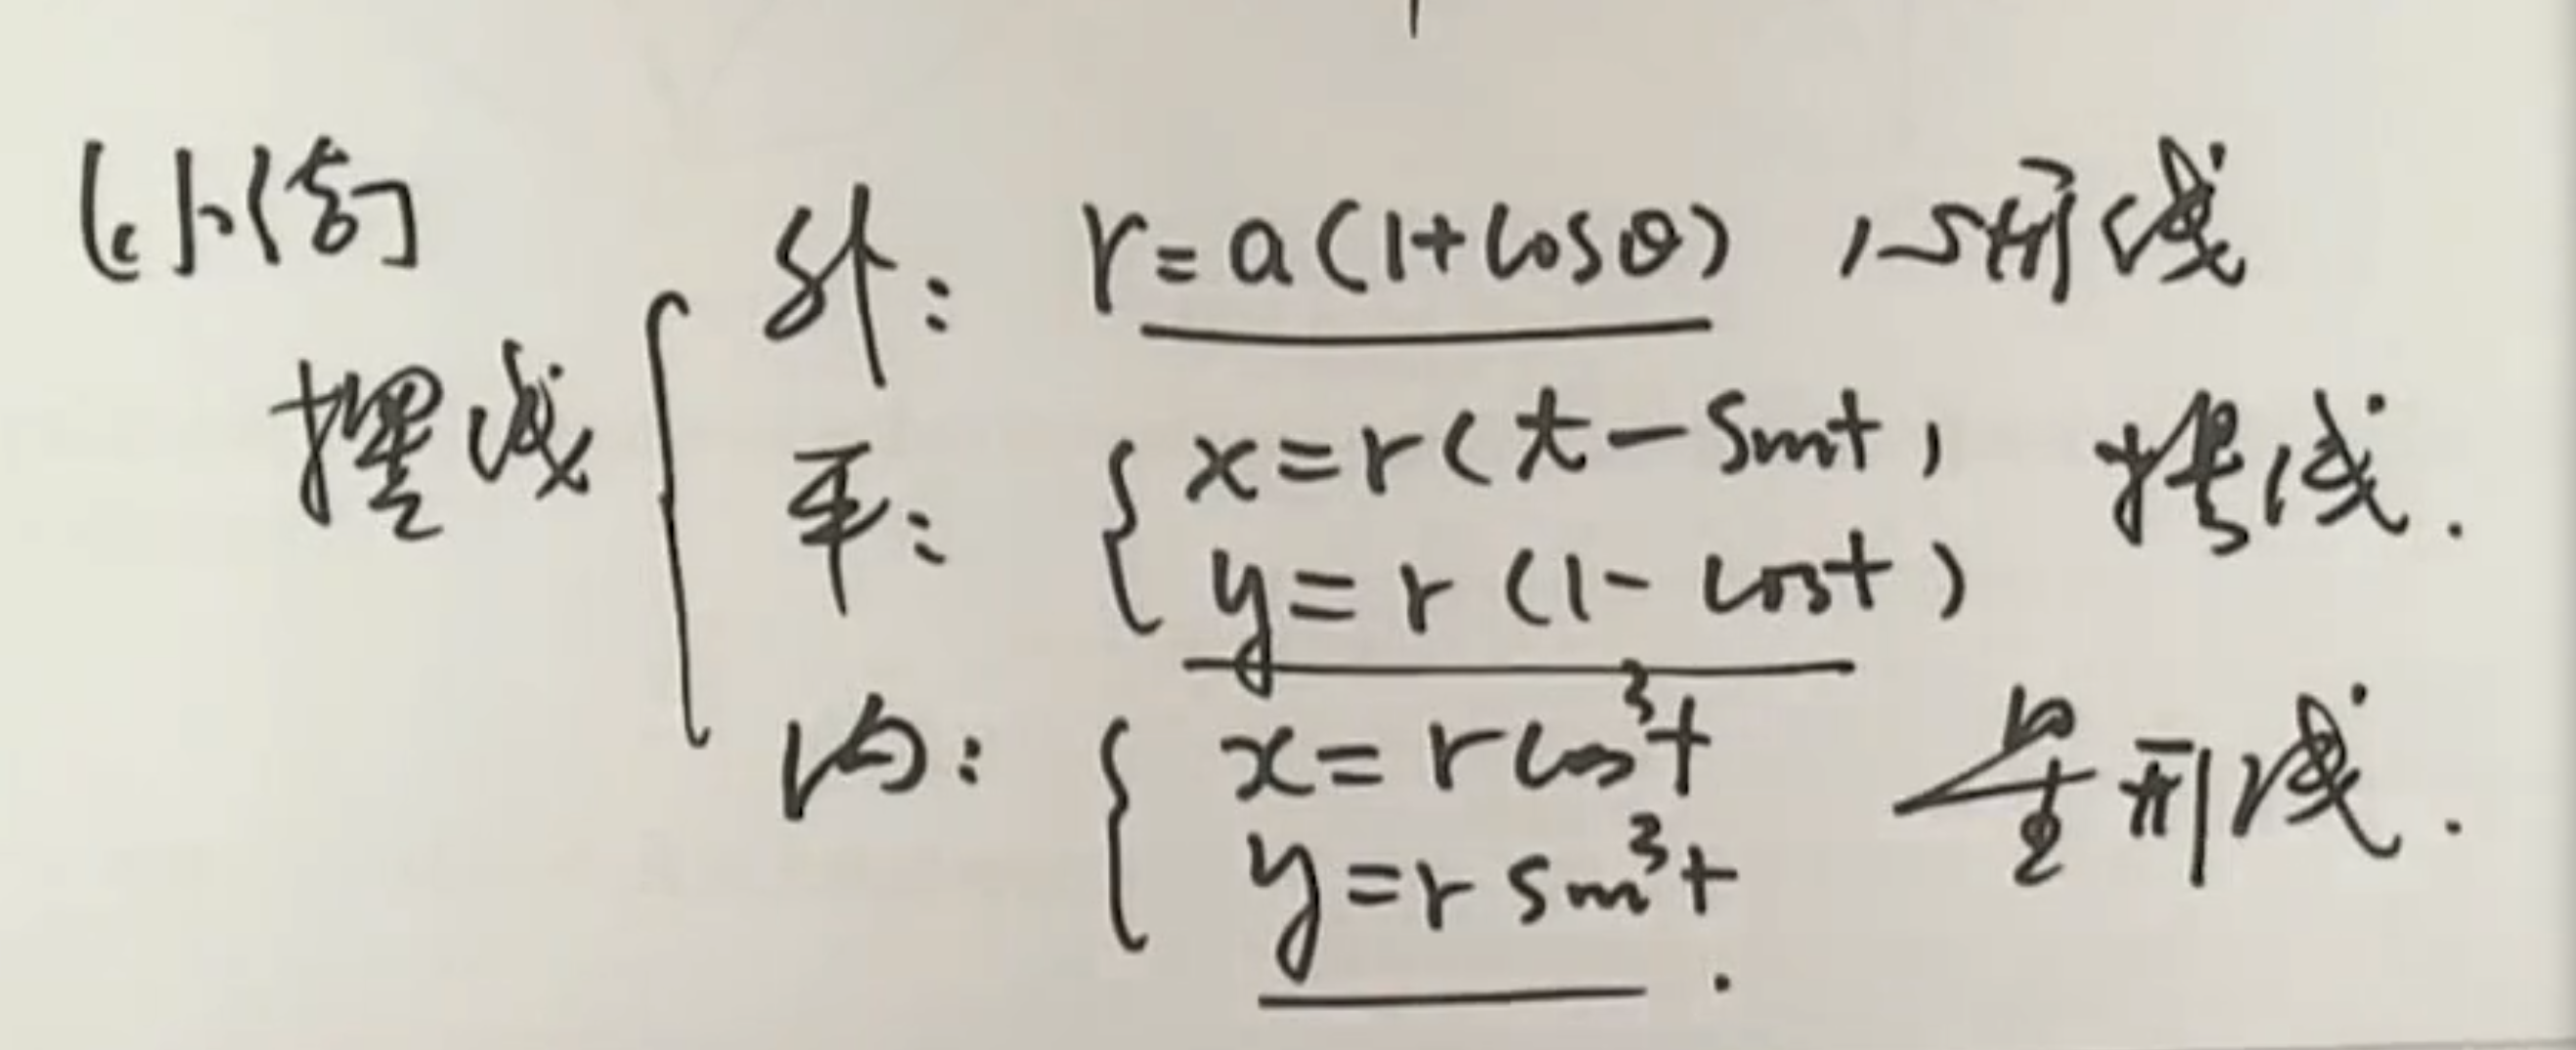 [小结]
摆线
外: r=a(1+cosθ) 心形线
平: { x=r(t-sint) 摆线.
y=r(1-cost)
内: { x=rcos³t 星形线.
y=rsin³t.